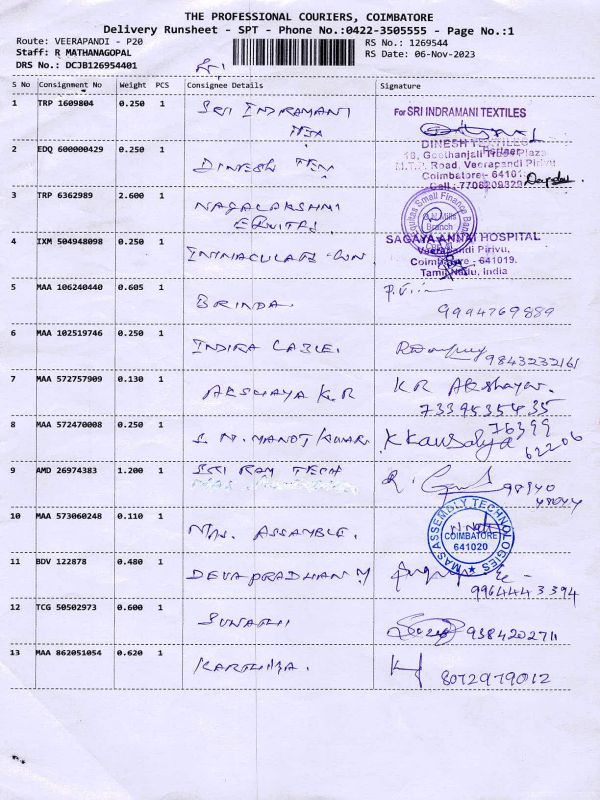 THE PROFESSIONAL COURIERS, COIMBATORE
Delivery Runsheet - SPT - Phone No.:0422-3505555 - Page No.:1
Route: VEERAPANDI - P20
Staff: R MATHANAGOPAL
DRS No.: DCJB126954401
RS No.: 1269544
RS Date: 06-Nov-2023
S No Consignment No Weight PCS Consignee Details Signature
1 TRP 1609804 0.250 1 SRI INDRAMANI TEX
For SRI INDRAMANI TEXTILES
Partner
2 EDQ 600000429 0.250 1 DINESH TEX
DINESH TEXTILES
M.T.P. Road, Veerapandi Pirivu
Coimbatore - 64101
Cell : 7708209320
3 TRP 6362989 2.600 1 NAGALAKSHMI
EQUITAS
Equitas Small Finance Bank
Branch
4 IXM 504948098 0.250 1 IMMACULATE
SAGAYA ANNAI HOSPITAL
Veerapandi Pirivu,
Coimbatore - 641019.
Tamil Nadu, India
5 MAA 106240440 0.605 1 BRINDA
9994769889
6 MAA 102519746 0.250 1 INDIRA CABLE.
9843232161
7 MAA 572757909 0.130 1 AKSHAYA K.R
KR Akshaya.
7339535435
8 MAA 572470008 0.250 1 S N. MANOJ KUMAR
K Kausalya 76399
62206
9 AMD 26974383 1.200 1 SRI RAM TECH
98940
48044
10 MAA 573060248 0.110 1 MAS. ASSAMBLE.
MAS ASSEMBLY TECHNOLOGIES
COIMBATORE
641020
11 BDV 122878 0.480 1 DEVAPRADHAN M
9964443394
12 TCG 50502973 0.600 1 SUNATHI
9384202711
13 MAA 862051054 0.620 1 KARTHIKA.
8072979012